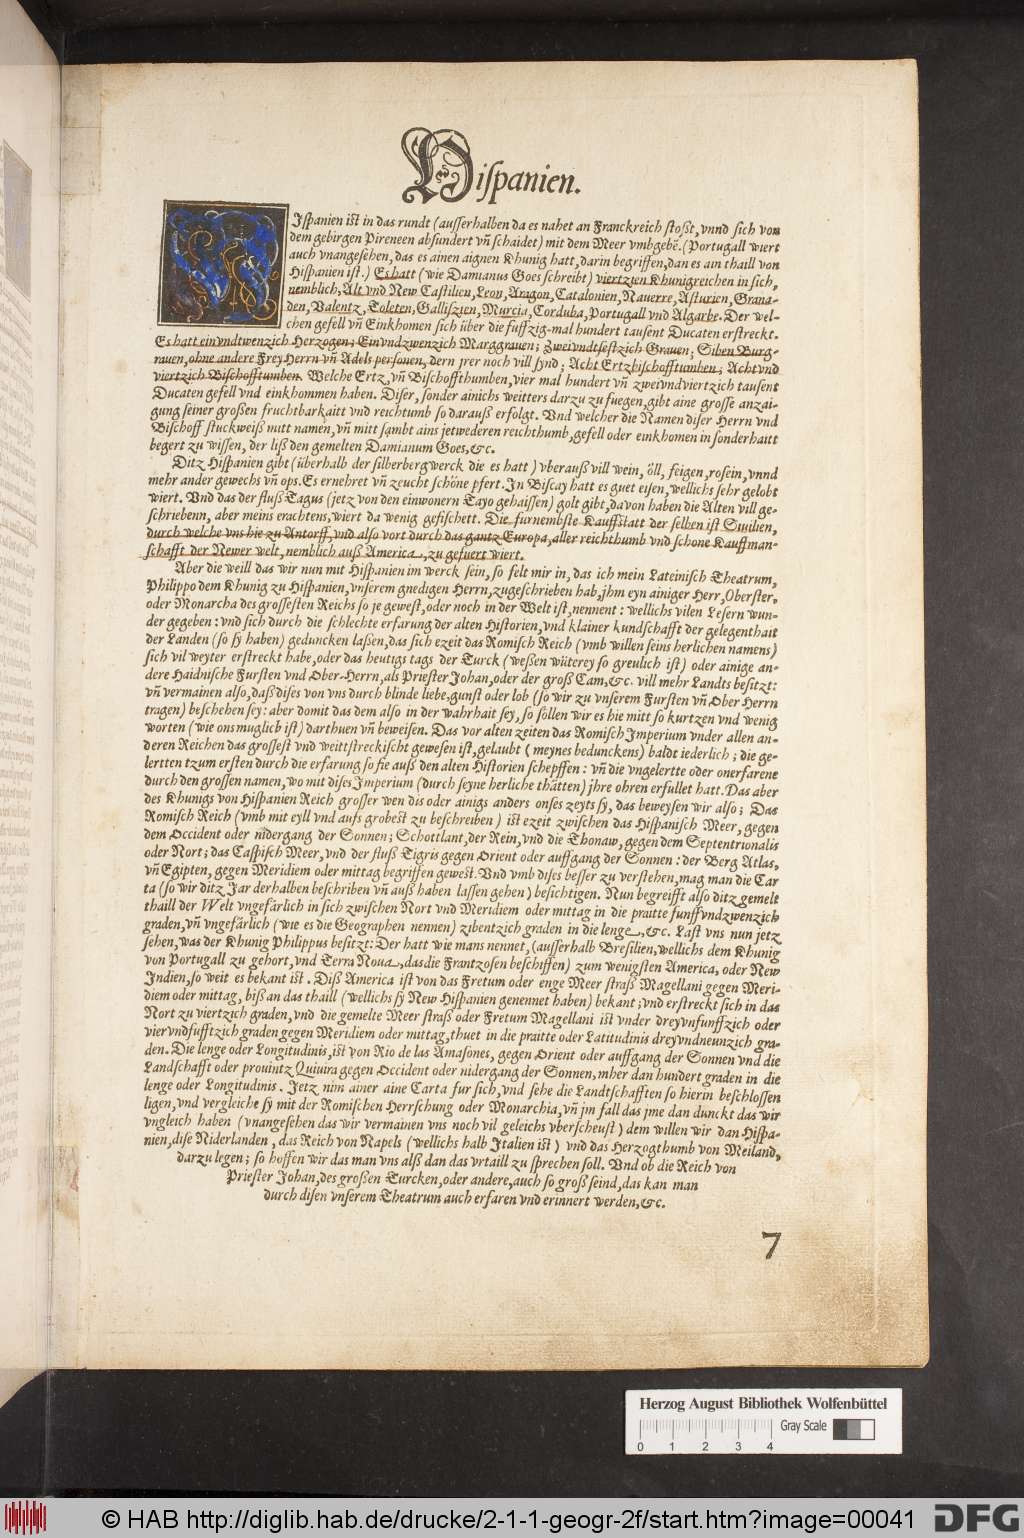 Hiſpanien.
HIſpanien iſt in das rundt (auſſerhalben da es nahet an Franckreich ſtoſt, vnnd ſich von
dem gebirgen Pireneen abſundert vñ ſchaidet) mit dem Meer vmbgebẽ. (Portugall wiert
auch vnangeſehen, das es ainen aignen Khunig hatt, darin begriffen, dan es ain thaill von
Hiſpanien iſt.) Es hatt (wie Damianus Goes ſchreibt) viertzien Khunigreichen in ſich,
nemblich, Alt vnd New Caſtilien, Leon, Aragon, Catalonien, Nauerre, Aſturien, Grana-
den, Valentz, Toleten, Galliſzien, Murcia, Corduba, Portugall vnd Algarbe. Der wel-
chen gefell vñ Einkhomen ſich über die fuffzig-mal hundert tauſent Ducaten erſtreckt.
Es hatt einvndtwenzich Herzogen; Einvndzwenzich Marggrauen; Zweivndtſeſtzich Grauen; Siben Burg-
rauen, ohne andere Frey Herrn vñ Adels perſonen, dern jrer noch vill ſynd; Acht Ertzbiſchofftumben; Acht vnd
viertzich Biſchofftumben. Welche Ertz, vñ Biſchoffthumben, vier mal hundert vñ zweivndviertzich tauſent
Ducaten gefell vnd einkhommen haben. Diſer, ſonder ainichs weitters darzu zu fuegen, gibt aine groſſe anzai-
gung ſeiner großen fruchtbarkaitt vnd reichtumb ſo darauß erfolgt. Vnd welcher die Namen diſer Herrn vnd
Biſchoff ſtuckweiß mitt namen, vñ mitt ſambt ains jetwederen reichthumb, gefell oder einkhomen in ſonderhaitt
begert zu wiſſen, der liß den gemelten Damianum Goes, &c.
Ditz Hiſpanien gibt (überhalb der ſilberbergwerck die es hatt) vberauß vill wein, öll, feigen, roſein, vnnd
mehr ander gewechs vñ ops. Es ernehret vñ zeucht ſchöne pfert. In Biſcay hatt es guet eiſen, wellichs ſehr gelobt
wiert. Vnd das der fluß Tagus (jetz von den einwonern Tayo gehaiſſen) golt gibt, davon haben die Alten vill ge-
ſchriebenn, aber meins erachtens, wiert da wenig gefiſchett. Die furnembſte Kauffſtatt der ſelben iſt Siuilien,
durch welche vns hie zu Antorff, vnd alſo vort durch das gantz Europa, aller reichthumb vnd ſchone Kauffman-
ſchafft der Newer welt, nemblich auß America, zu gefuert wiert.
Aber die weill das wir nun mit Hiſpanien im werck ſein, ſo felt mir in, das ich mein Lateiniſch Theatrum,
Philippo dem Khunig zu Hiſpanien, vnſerem gnedigen Herrn, zugeſchrieben hab, jhm eyn ainiger Herr, Oberſter,
oder Monarcha des groſſeſten Reichs ſo je geweſt, oder noch in der Welt iſt, nennent: wellichs vilen Leſern wun-
der gegeben: vnd ſich durch die ſchlechte erfarung der alten Hiſtorien, vnd klainer kundſchafft der gelegenthait
der Landen (ſo ſy haben) geduncken laßen, das ſich ezeit das Romiſch Reich (vmb willen ſeins herlichen namens)
ſich vil weyter erſtreckt habe, oder das heutigs tags der Turck (weßen wüterey ſo greulich iſt) oder ainige an-
dere Haidniſche Furſten vnd Ober-Herrn, als Prieſter Johan, oder der groß Cam, &c. vill mehr Landts beſitzt:
vñ vermainen alſo, daß diſes von vns durch blinde liebe, gunſt oder lob (ſo wir zu vnſerem Furſten vñ Ober Herrn
tragen) beſchehen ſey: aber domit das dem alſo in der wahrhait ſey, ſo ſollen wir es hie mitt ſo kurtzen vnd wenig
worten (wie ons muglicb iſt) darthuen vñ beweiſen. Das vor alten zeiten das Romiſch Imperium vnder allen an-
deren Reichen das groſſeſt vnd weittſtreckiſcht geweſen iſt, gelaubt (meynes bedunckens) baldt iederlich; die ge-
lertten tzum erſten durch die erfarung ſo ſie auß den alten Hiſtorien ſchepffen: vñ die vngelertte oder onerfarene
durch den groſſen namen, wo mit diſes Imperium (durch ſeyne herliche thätten) jhre ohren erfullet hatt. Das aber
des Khunigs von Hiſpanien Reich groſſer wen dis oder ainigs anders onſes zeyts ſy, das beweyſen wir alſo; Das
Romiſch Reich (vmb mit eyll vnd aufs grobeſt zu beſchreiben) iſt ezeit zwiſchen das Hiſpaniſch Meer, gegen
dem Occident oder nidergang der Sonnen; Schottlant, der Rein, vnd die Thonaw, gegen dem Septentrionalis
oder Nort; das Caſpiſch Meer, vnd der fluß Tigris gegen Orient oder auffgang der Sonnen: der Berg Atlas,
vñ Egipten, gegen Meridiem oder mittag begriffen geweſt. Vnd vmb diſes beſſer zu verſtehen, mag man die Car
ta (ſo wir ditz Jar derhalben beſchriben vñ auß haben laſſen gehen) beſichtigen. Nun begreifft alſo ditz gemelt
thaill der Welt vngefärlich in ſich zwiſchen Nort vnd Meridiem oder mittag in die praitte funffvndzwenzich
graden, vñ vngefärlich (wie es die Geographen nennen) zibentzich graden in die lenge, &c. Laſt vns nun jetz
ſehen, was der Khunig Philippus beſitzt: Der hatt wie mans nennet, (auſſerhalb Breſilien, wellichs dem Khunig
von Portugall zu gehort, vnd Terra Noua, das die Frantzoſen beſchiffen) zum wenigſten America, oder New
Indien, ſo weit es bekant iſt. Diß America iſt von das Fretum oder enge Meer ſtraß Magellani gegen Meri-
diem oder mittag, biß an das thaill (wellichs ſy New Hiſpanien genennet haben) bekant; vnd erſtreckt ſich in das
Nort zu viertzich graden, vnd die gemelte Meer ſtraß oder Fretum Magellani iſt vnder dreyvnfunffzich oder
viervndfufftzich graden gegen Meridiem oder mittag, thuet in die praitte oder Latitudinis dreyvndneunzich gra-
den. Die lenge oder Longitudinis, iſt von Rio de las Amaſones, gegen Orient oder auffgang der Sonnen vnd die
Landſchafft oder prouintz Quiuira gegen Occident oder nidergang der Sonnen, mher dan hundert graden in die
lenge oder Longitudinis. Jetz nim ainer aine Carta fur ſich, vnd ſehe die Landtſchafften ſo hierin beſchloſſen
ligen, vnd vergleiche ſy mit der Romiſchen Herrſchung oder Monarchia, vñ jm fall das jme dan dunckt das wir
vngleich haben (vnangeſehen das wir vermainen vns noch vil geleichs vberſcheuſt) dem willen wir dan Hiſpa-
nien, diſe Niderlanden, das Reich von Napels (wellichs halb Italien iſt) vnd das Herzogthumb von Meiland,
darzu legen; ſo hoffen wir das man vns alß dan das vrtaill zu ſprechen ſoll. Vnd ob die Reich von
Prieſter Johan, des großen Turcken, oder andere, auch ſo groß ſeind, das kan man
durch diſen vnſerem Theatrum auch erfaren vnd erinnert werden, &c.
7
Herzog August Bibliothek Wolfenbüttel
Gray Scale
0 1 2 3 4
© HAB http://diglib.hab.de/drucke/2-1-1-geogr-2f/start.htm?image=00041
DFG